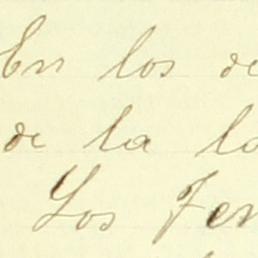 En los de
de la la
Los Fer